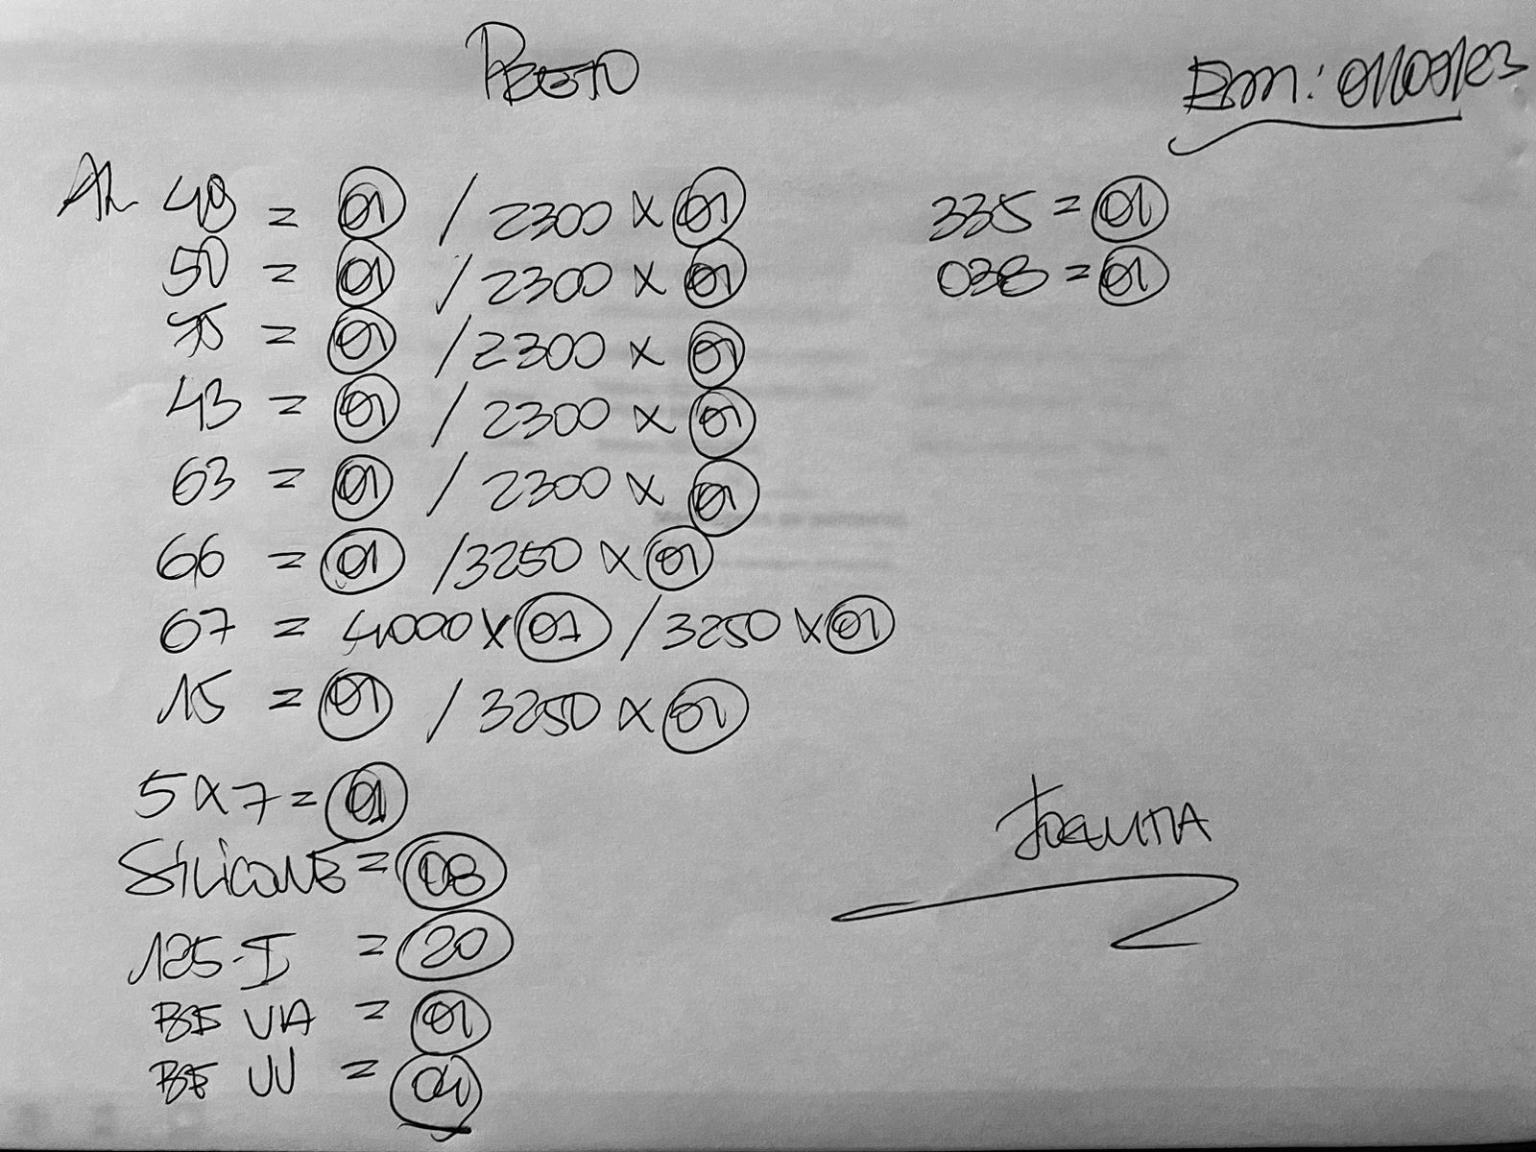 PRETO
Em: 01/09/23
AL 49 = 01 / 2300 x 01
50 = 01 / 2300 x 01
75 = 01 / 2300 x 01
43 = 01 / 2300 x 01
63 = 01 / 2300 x 01
66 = 01 / 3250 x 01
67 = 4000 x 01 / 3250 x 01
15 = 01 / 3250 x 01
5 x 7 = 01
SiLiCONE = 08
125-I = 20
BE VA = 01
BE VV = 04
335 = 01
038 = 01